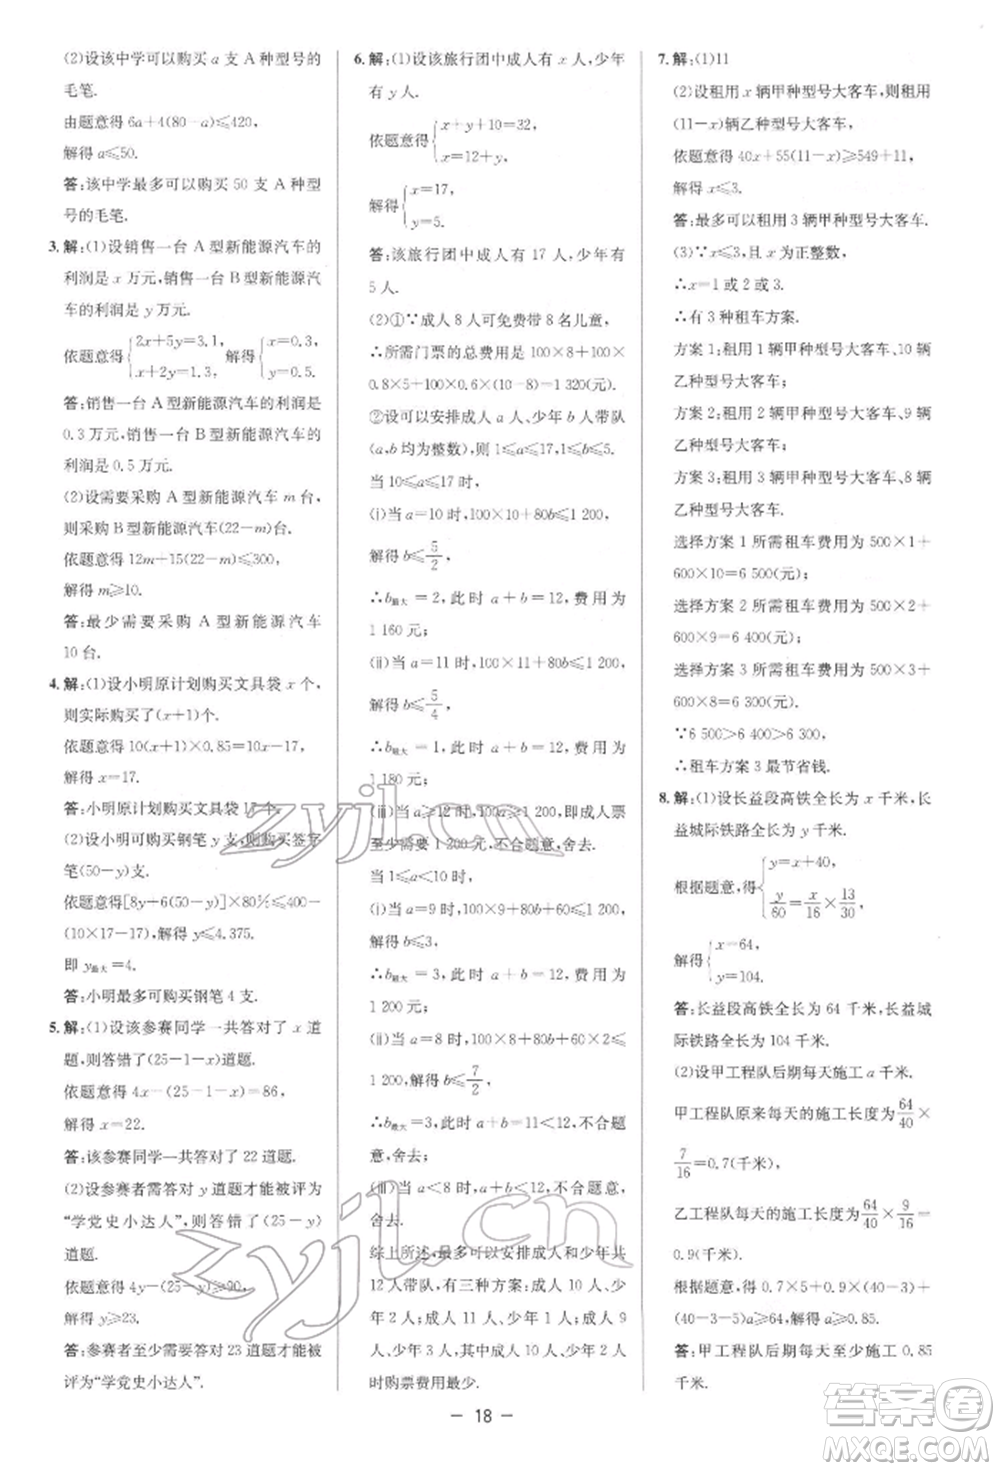 (2)设该中学可以购买 a 支 A 种型号的
毛笔.
由题意得 6a+4(80-a)≤420,
解得 a≤50.
答:该中学最多可以购买 50 支 A 种型
号的毛笔.
3.解:(1)设销售一台 A 型新能源汽车的
利润是 x 万元,销售一台 B 型新能源汽
车的利润是 y 万元.
依题意得{2x+5y=3.1, x+2y=1.3, 解得{x=0.3, y=0.5.
答:销售一台 A 型新能源汽车的利润是
0.3 万元,销售一台 B 型新能源汽车的
利润是 0.5 万元.
(2)设需要采购 A 型新能源汽车 m 台,
则采购 B 型新能源汽车(22-m)台.
依题意得 12m+15(22-m)≤300,
解得 m≥10.
答:最少需要采购 A 型新能源汽车
10 台.
4.解:(1)设小明原计划购买文具袋 x 个,
则实际购买了(x+1)个.
依题意得 10(x+1)×0.85=10x-17,
解得 x=17.
答:小明原计划购买文具袋 17 个.
(2)设小明可购买钢笔 y 支,则购买签字
笔(50-y)支.
依题意得[8y+6(50-y)]×80%≤400-
(10×17-17),解得 y≤4.375.
即 y最大=4.
答:小明最多可购买钢笔 4 支.
5.解:(1)设该参赛同学一共答对了 x 道
题,则答错了(25-1-x)道题.
依题意得 4x-(25-1-x)=86,
解得 x=22.
答:该参赛同学一共答对了 22 道题.
(2)设参赛者需答对 y 道题才能被评为
“学党史小达人”,则答错了(25-y)
道题.
依题意得 4y-(25-y)≥90,
解得 y≥23.
答:参赛者至少需答对 23 道题才能被
评为“学党史小达人”.
6.解:(1)设该旅行团中成人有 x 人,少年
有 y 人.
依题意得{x+y+10=32, x=12+y,
解得{x=17, y=5.
答:该旅行团中成人有 17 人,少年有
5 人.
(2)①∵成人 8 人可免费带 8 名儿童,
∴所需门票的总费用是 100×8+100×
0.8×5+100×0.6×(10-8)=1 320(元).
②设可以安排成人 a 人、少年 b 人带队
(a,b 均为整数),则 1≤a≤17,1≤b≤5.
当 10≤a≤17 时,
(ⅰ)当 a=10 时,100×10+80b≤1 200,
解得 b≤5/2,
∴b最大=2,此时 a+b=12,费用为
1 160 元;
(ⅱ)当 a=11 时,100×11+80b≤1 200,
解得 b≤5/4,
∴b最大=1,此时 a+b=12,费用为
1 180 元;
(ⅲ)当 a≥12 时,100a≥1 200,即成人票
至少需要 1 200 元,不合题意,舍去.
当 1≤a<10 时,
(ⅰ)当 a=9 时,100×9+80b≤1 200,
解得 b≤3,
∴b最大=3,此时 a+b=12,费用为
1 200 元;
(ⅱ)当 a=8 时,100×8+80b≤
1 200,解得 b≤7/2,
∴b最大=3,此时 a+b=11<12,不合题
意,舍去;
(ⅲ)当 a<8 时,a+b<12,不合题意,
舍去.
综上所述,最多可以安排成人和少年共
12 人带队,有三种方案:成人 10 人、少
年 2 人;成人 11 人、少年 1 人;成人 9
人、少年 3 人,其中成人 10 人、少年 2 人
时购票费用最少.
7.解:(1)11
(2)设租用 x 辆甲种型号大客车,则租用
(11-x)辆乙种型号大客车,
依题意得 40x+55(11-x)≥549+11,
解得 x≤3.
答:最多可以租用 3 辆甲种型号大客车.
(3)∵x≤3,且 x 为正整数,
∴x=1 或 2 或 3.
∴有 3 种租车方案.
方案 1:租用 1 辆甲种型号大客车、10 辆
乙种型号大客车;
方案 2:租用 2 辆甲种型号大客车、9 辆
乙种型号大客车;
方案 3:租用 3 辆甲种型号大客车、8 辆
乙种型号大客车.
选择方案 1 所需租车费用为 500×1+
600×10=6 500(元);
选择方案 2 所需租车费用为 500×2+
600×9=6 400(元);
选择方案 3 所需租车费用为 500×3+
600×8=6 300(元).
∵6 500>6 400>6 300,
∴租车方案 3 最节省钱.
8.解:(1)设长益段高铁全长为 x 千米,长
益城际铁路全长为 y 千米.
根据题意,得{y=x+40, y/80=x/16×13/30,
解得{x=64, y=104.
答:长益段高铁全长为 64 千米,长益城
际铁路全长为 104 千米.
(2)设甲工程队后期每天施工 a 千米.
甲工程队原来每天的施工长度为64/40×
7/16=0.7(千米),
乙工程队每天的施工长度为64/40×9/16=
0.9(千米).
根据题意,得 0.7×5+0.9×(40-3)+
(40-3-5)a≥64,解得 a≥0.85.
答:甲工程队后期每天至少施工 0.85
千米.
— 18 —
zyjl.cn
zyjl.cn
答案圈
MXQE.COM